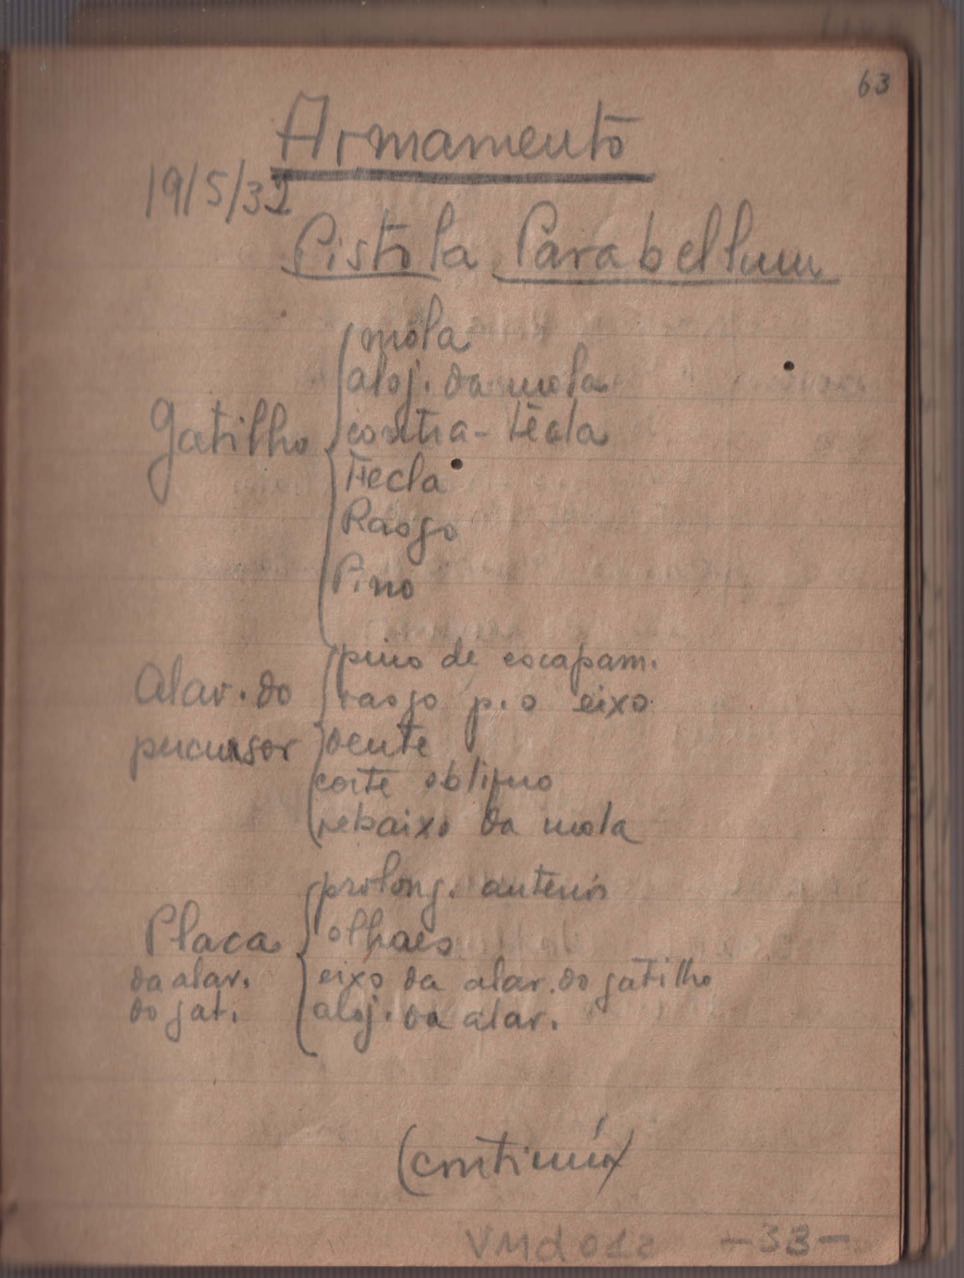 63
Armamento
19/5/32
Pistola Parabellum
Gatilho
mola
aloj. da mola
contra-técla
Técla
Rasgo
Pino
Alav. do
pino de escapam.
rasgo p. o eixo
percursor
dente
corte obliquo
rebaixo da mola
Placa
da alav.
do gat.
prolong. anterior
olhaes
eixo da alav. do gatilho
aloj. da alav.
(continúa)
VMd012 -33-